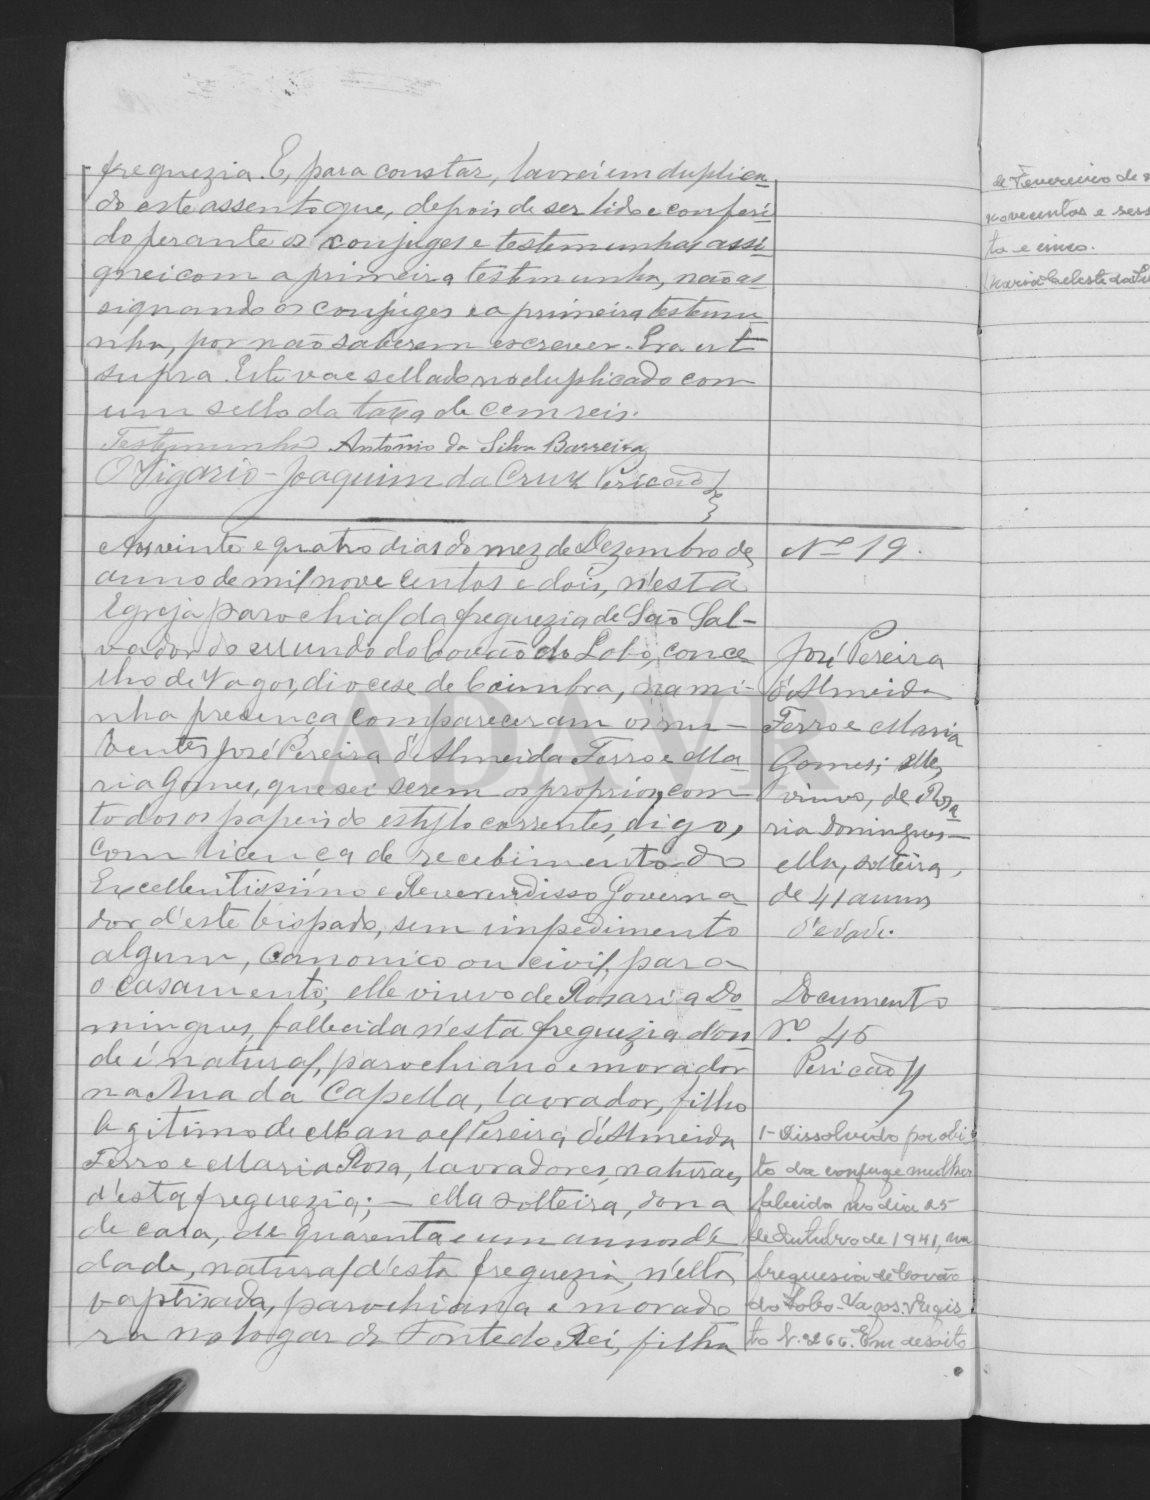 freguezia. E, para constar, lavrei em duplica
do este assento que, depois de ser lido e conferi
do perante os conjuges e testemunhas assi
gnei com a primeira testemunha, não as
signando os conjuges e a primeira testemu
nha, por não saberem escrever. Era ut
supra. Este vae sellado no duplicado com
um sello da taxa de cem reis.
Testemunha Antonio da Silva Barreira
O Vigario - Joaquim da Cruz Pericão
Aos vinte e quatro dias do mez de Dezembro de
anno de mil nove centos e dois, n'esta
Egreja parochial da freguezia de São Sal-
vador do Mundo do Covão do Lobo, conce
lho de Vagos, diocese de Coimbra, na mi-
nha presença compareceram os nu-
bentes José Pereira d'Almeida Ferro e Ma
ria Gomes, que sei serem os proprios, com
todos os papeis do estylo correntes, digo,
com licença de recebimento do
Excellentissimo e Reverendisso Governa
dor d'este bispado, sem impedimento
algum, canonico ou civil, para
o casamento; elle viuvo de Rosaria Do
mingues, fallecida n'esta freguezia d'on
de é natural, parochiano e morador
na Rua da Capella, lavrador, filho
legitimo de Manoel Pereira d'Almeida
Ferro e Maria Rosa, lavradores, naturaes
d'esta freguezia; - ella solteira, dona
de casa, de quarenta e um annos d'e
dade, natural d'esta freguezia, n'ella
baptisada, parochiana e morado
ra no logar da Fonte do Rei, filha
Nº 19.
José Pereira
d'Almeida
Ferro e Maria
Gomes; elle,
viuvo, de Rosa
ria Domingues -
ella, solteira,
de 41 annos
d'edade.
Documento
Nº 46
Pericão
1 - Dissolvido por obi
to da conjuge mulher
falecida no dia 25
de Outubro de 1941, na
freguesia de Covão
do Lobo - Vagos. Regis
to N. 266. Em dezoito
de Fevereiro de
novecentos e sess
ta e cinco.
Maria Celeste da
ADAVR